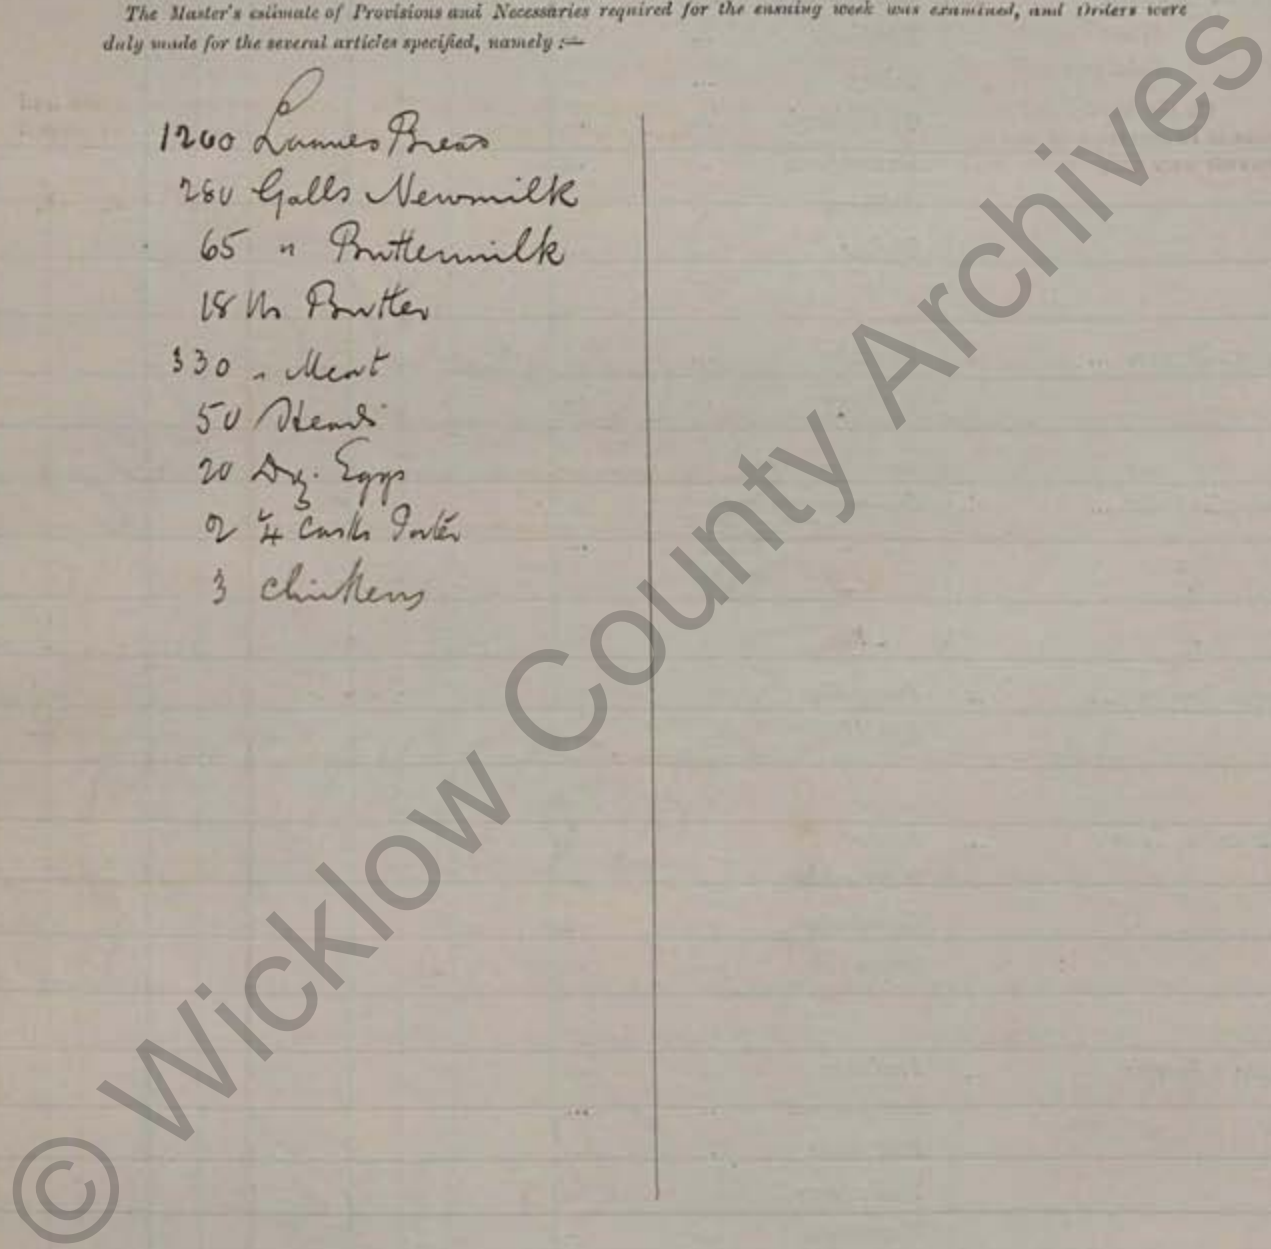 The Master's estimate of Provisions and Necessaries required for the ensuing week was examined, and Orders were
duly made for the several articles specified, namely :—
1200 Bread
280 Galls Newmilk
65 " Buttermilk
18 lbs Butter
330 " Meat
50 Heads
20 Dz. Eggs
2 1/4 Casks Porter
3 Chickens
© Wicklow County Archives